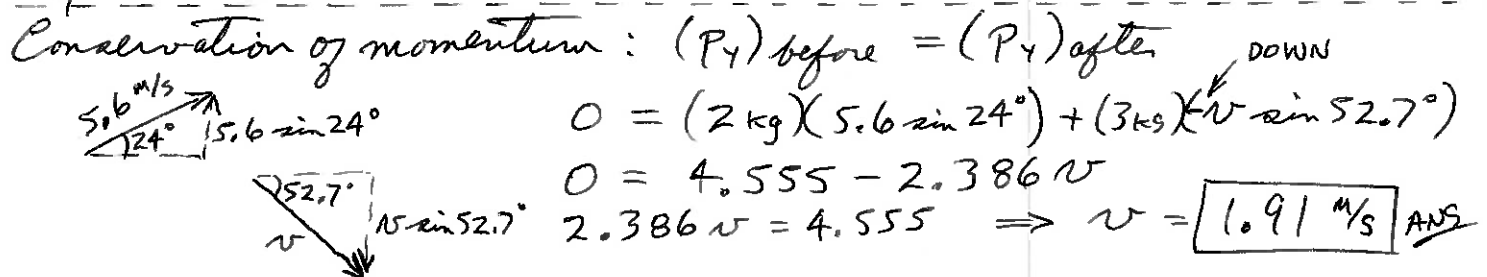 Conservation of momentum : (Py) before = (Py) after
DOWN
5.6 m/s
24°
5.6 sin 24°
0 = (2 kg)(5.6 sin 24°) + (3 kg)(-v sin 52.7°)
0 = 4.555 - 2.386 v
52.7°
v
v sin 52.7°
2.386 v = 4.555 ⟹ v = 1.91 m/s ANS